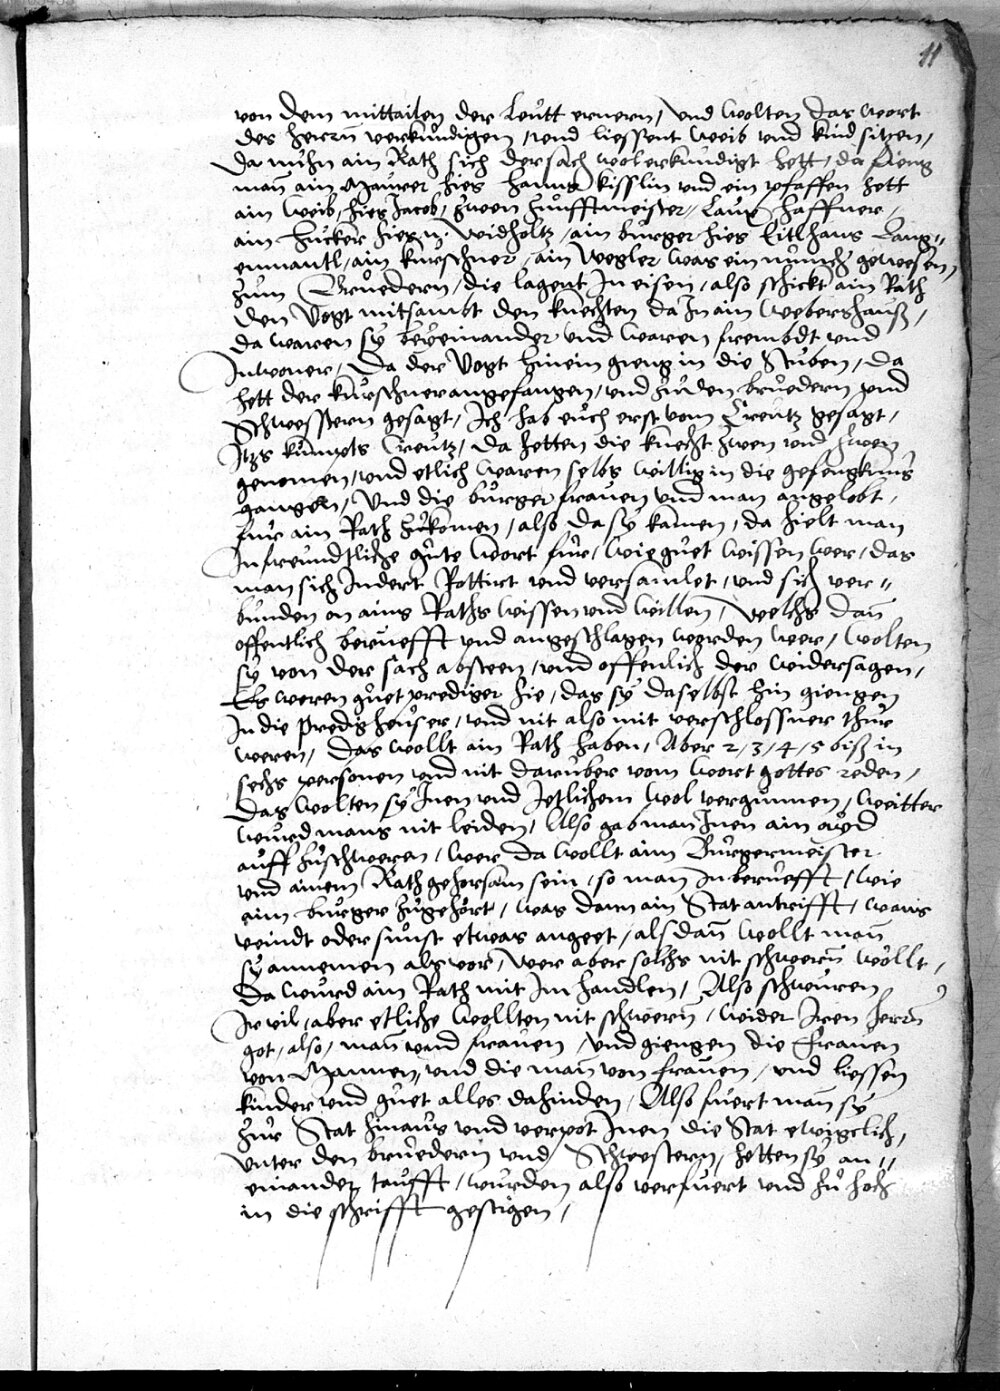 11
von dem mittailen der Leutt ernern, Und wolten das wort
des herrn verkündigen, unnd liessent weib und kind sitzen,
Da nuhn ain Rath sich der sach wol erkundigt hett, da fieng
man ain Maurer hies Hanns Kisslin und ein pfaffen hett
ain weib, hies Jacob, zween Zunfftmeister, Laux Haffner,
ain Hucker hies u. Widholtz, ain burger hies Eitlhans Lang=
enmantl, ain Kurschner, ain Wegler was ein münch gewesen,
zum Bruedern, die lagent In eisen, also schickt ain Rath
den Vogt mitsambt den knechten da In ain Webershauß,
da waren sy beyeinander und waren frembdt und
Inwoner, Da der Vogt hinein gieng in die Stuben, da
hett der Kürschner angefangen, und zu den bruedern und
Schwesstern gesagt, Ich hab euch erst vom Creutz gesagt,
Itzs kumpts Creutz, da hetten die knecht zwen und zwen
genomen, und etlich waren selbs willig in die gefengknus
gangen, Und die burger frauen und man angelobt,
für ain Rath zukomen, also da sy kamen, da hielt man
In freundtliche güte wort für, wie guet wissen wer, das
man sich Indert Rottirt und versamlet, und sich ver=
bunden on ains Raths wissen und willen, welchs dan
offentlich berüefft und angeschlagen werden wer, wolten
sy von der sach absteen, und offenlich der widersagen,
Es weren guet prediger hie, das sy daselbst hin giengen
In die predig heuser, und nit also mit verschlossner thür
weren, das wollt ain Rath haben, Aber 2, 3, 4, 5 biß in
sechs personen und nit darüber vom wort gottes reden,
Das wolten sy Inen und Jetlichem wol vergunnen, weitter
wurd mans nit leiden, Also gab man Inen ain ayd
auff zuschweren, wer da wollt aim Burgermeister
und ainem Rath gehorsam sein, so man In berüefft, wie
aim burger zugehört, was dann ain Stat antrifft, wans
veindt oder sunst etwas angeet, als dan wollt man
sy annemen als vor, Wer aber solchs nit schwern wollt,
Da wurd ain Rath mit Im handlen, Also schwuren
Ir vil, aber etliche wollten nit schwern, wider Iren herrn
got, also, man und frauen, und giengen die frauen
von Mannen, und die man von frauen, und liessen
kinder und guet alles dahinden, Also fuert man sy
zur Stat hinaus und verpot Inen die Stat ewigclich,
Unter den bruedern und Schwestern, hetten sy an=
einander taufft, wurden also verfuert und zu hoch
in die schrifft gestigen,